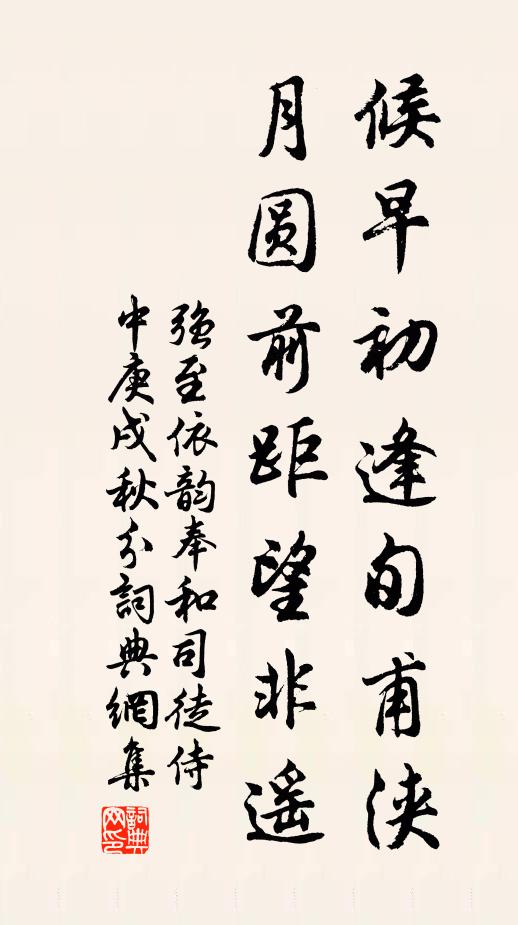 候早初逢旬甫浹
月圆前距望非遥
强至依韵奉和司徒侍
中庚戌秋分詞典網集
詞典网印